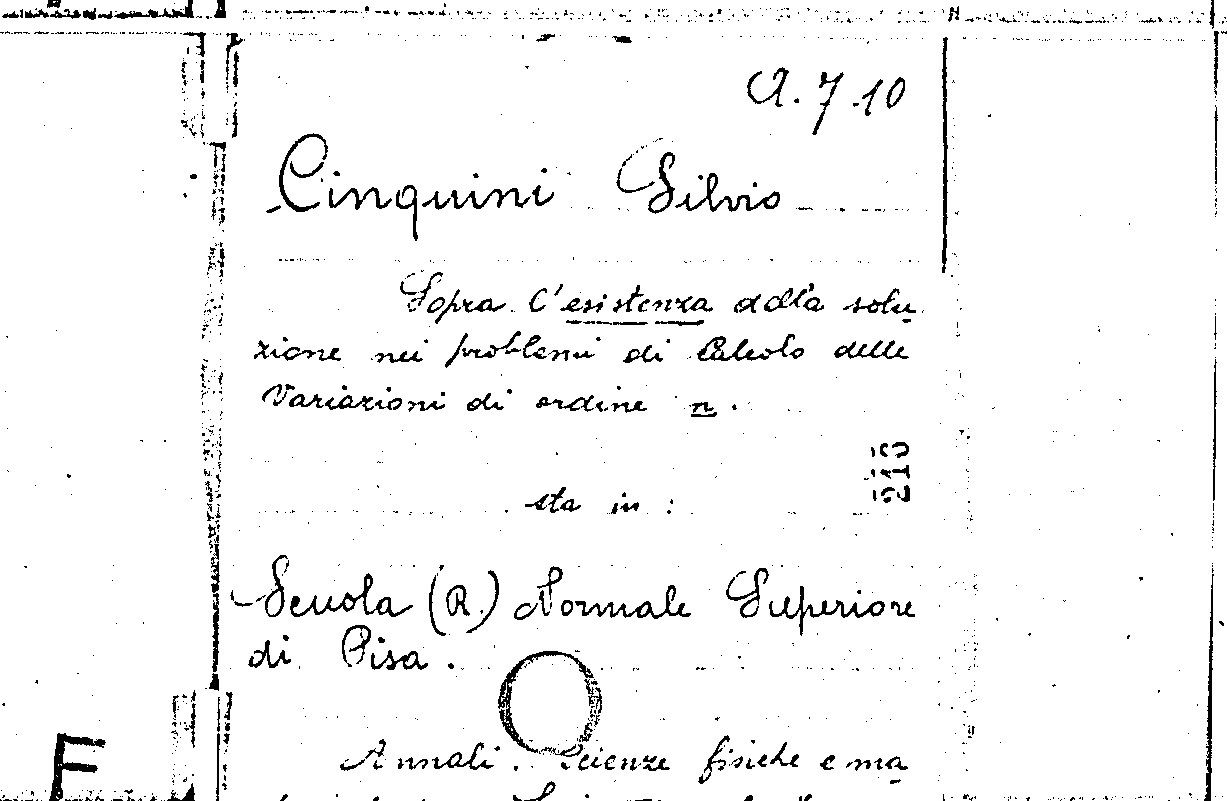 A.7.10
Cinquini Silvio
Sopra l'esistenza della solu
zione nei problemi di Calcolo delle
Variazioni di ordine n.
210
sta in :
Scuola (R.) Normale Superiore
di Pisa.
Annali. Scienze fisiche e ma
F